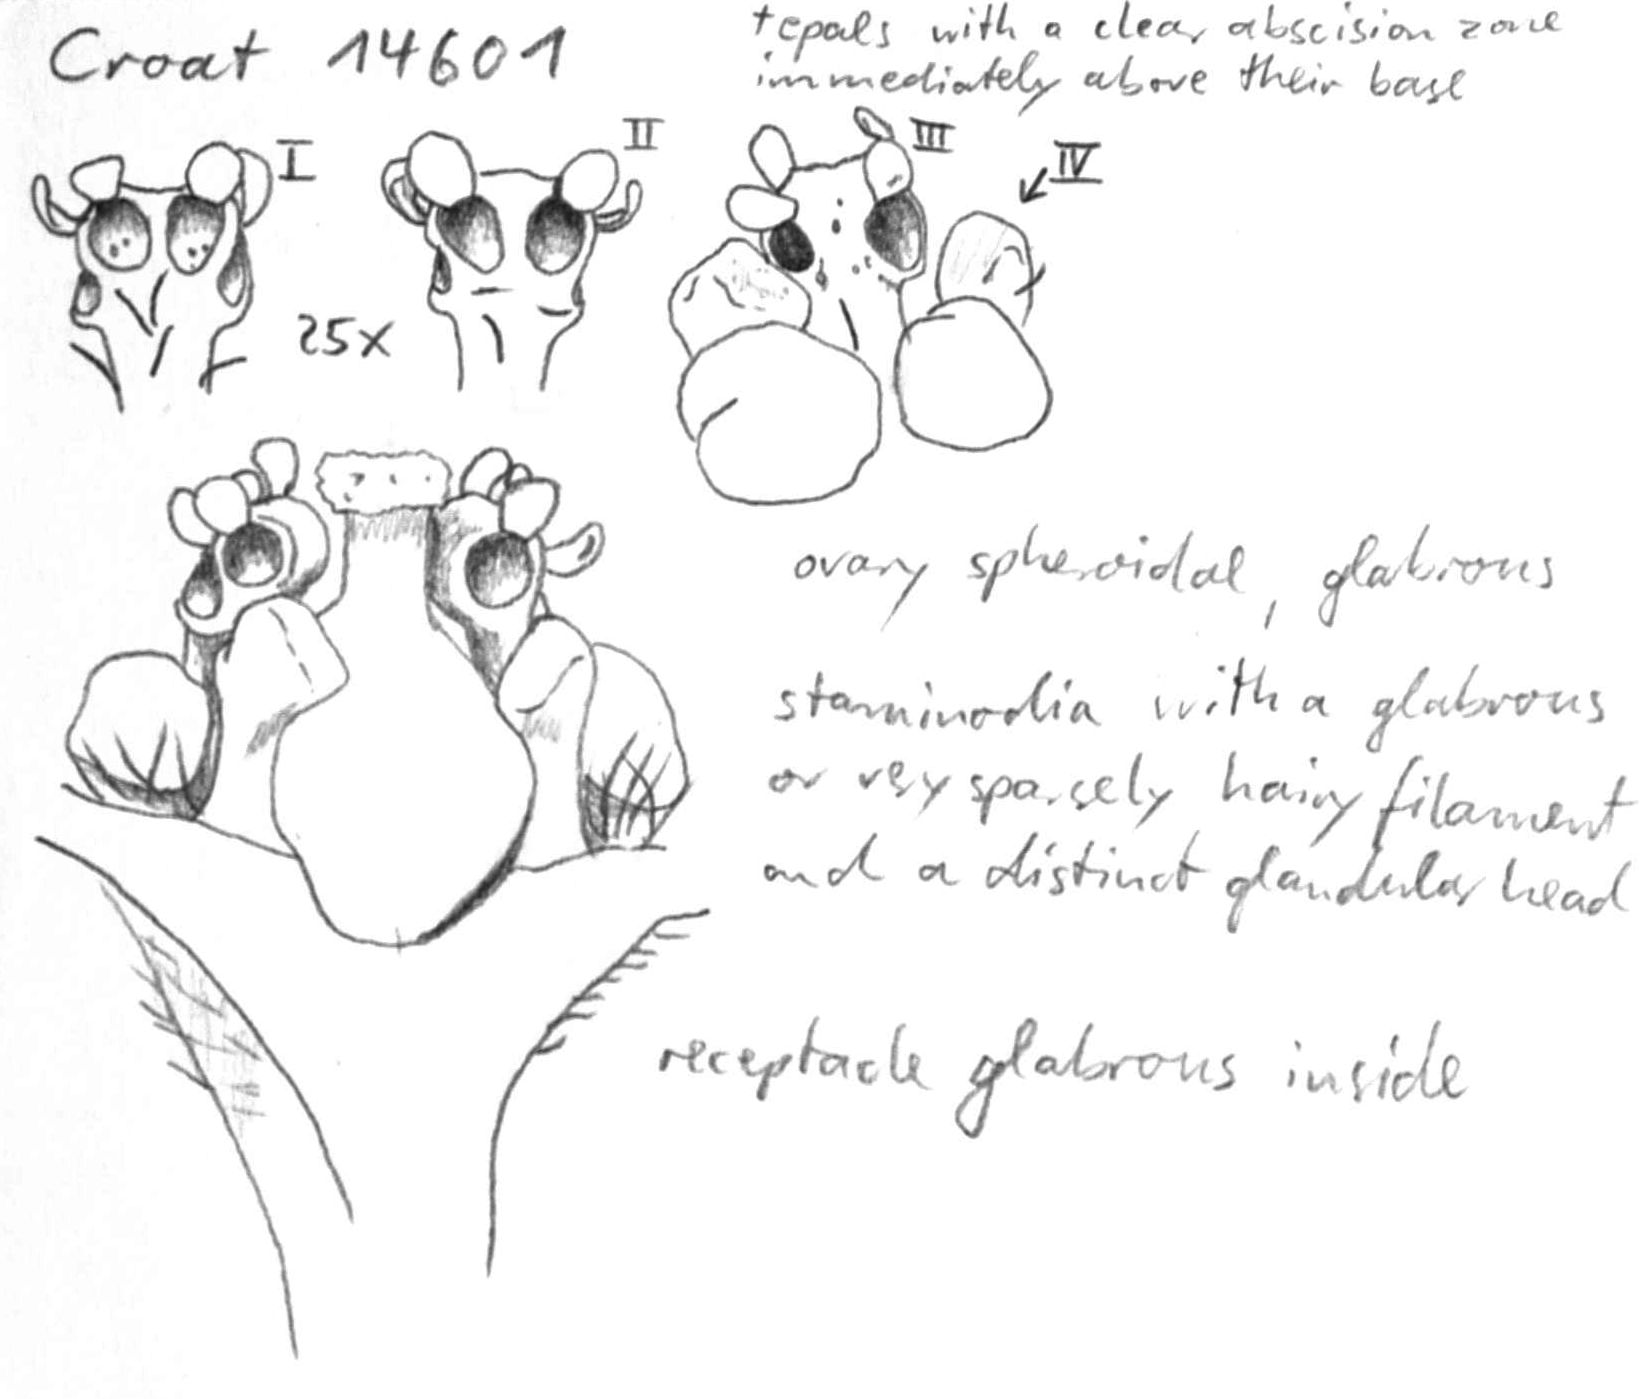 Croat 14601
tepals with a clear abscision zone
immediately above their base
I
II
III
IV
25x
ovary spheroidal, glabrous
staminodia with a glabrous
or very sparsely hairy filament
and a distinct glandular head
receptacle glabrous inside